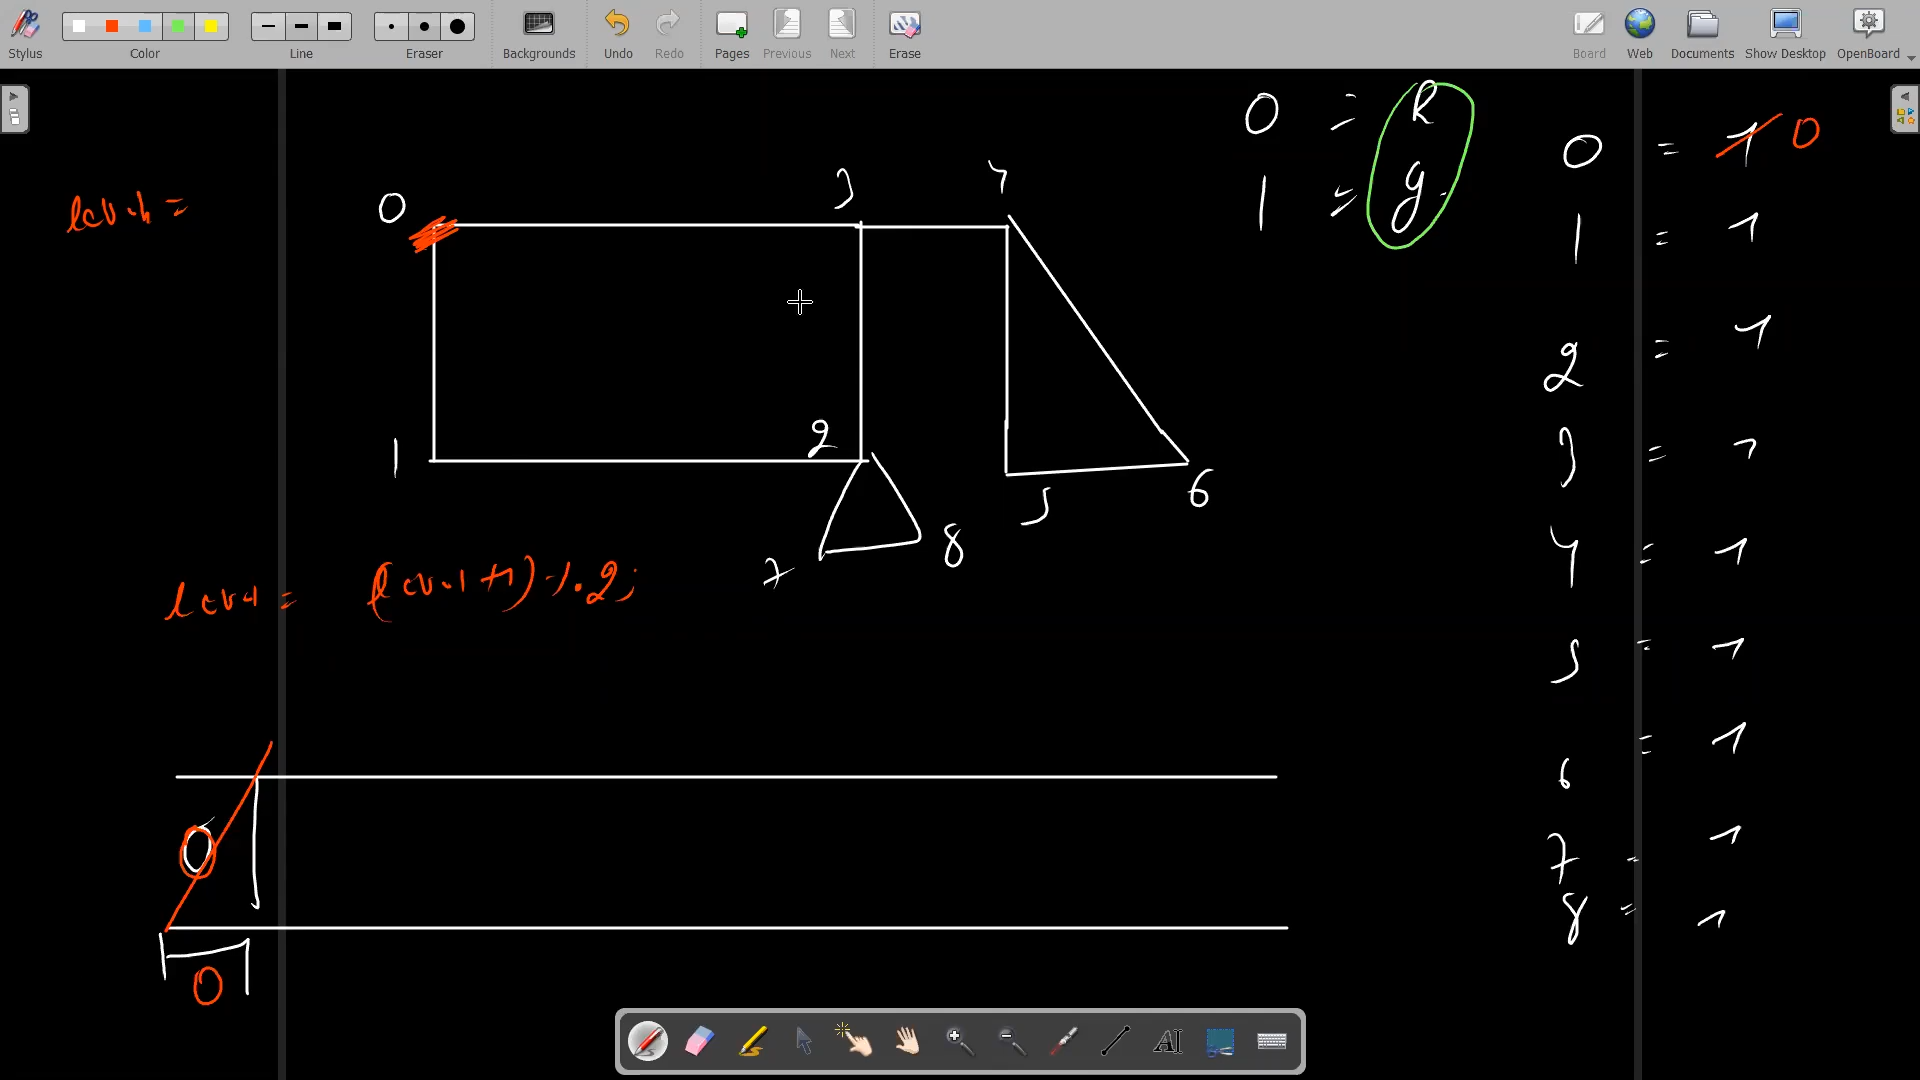 Stylus
Color
Line
Eraser
Backgrounds
Undo
Redo
Pages
Previous
Next
Erase
Board
Web
Documents
Show Desktop
OpenBoard
0 = R
1 = g
0
3
4
1
2
5
6
7
8
level = (level+1)%2;
0
0
0 = 1 0
1 = 1
2 = 1
3 = 1
4 = 1
5 = 1
6 = 1
7 = 1
8 = 1
AI